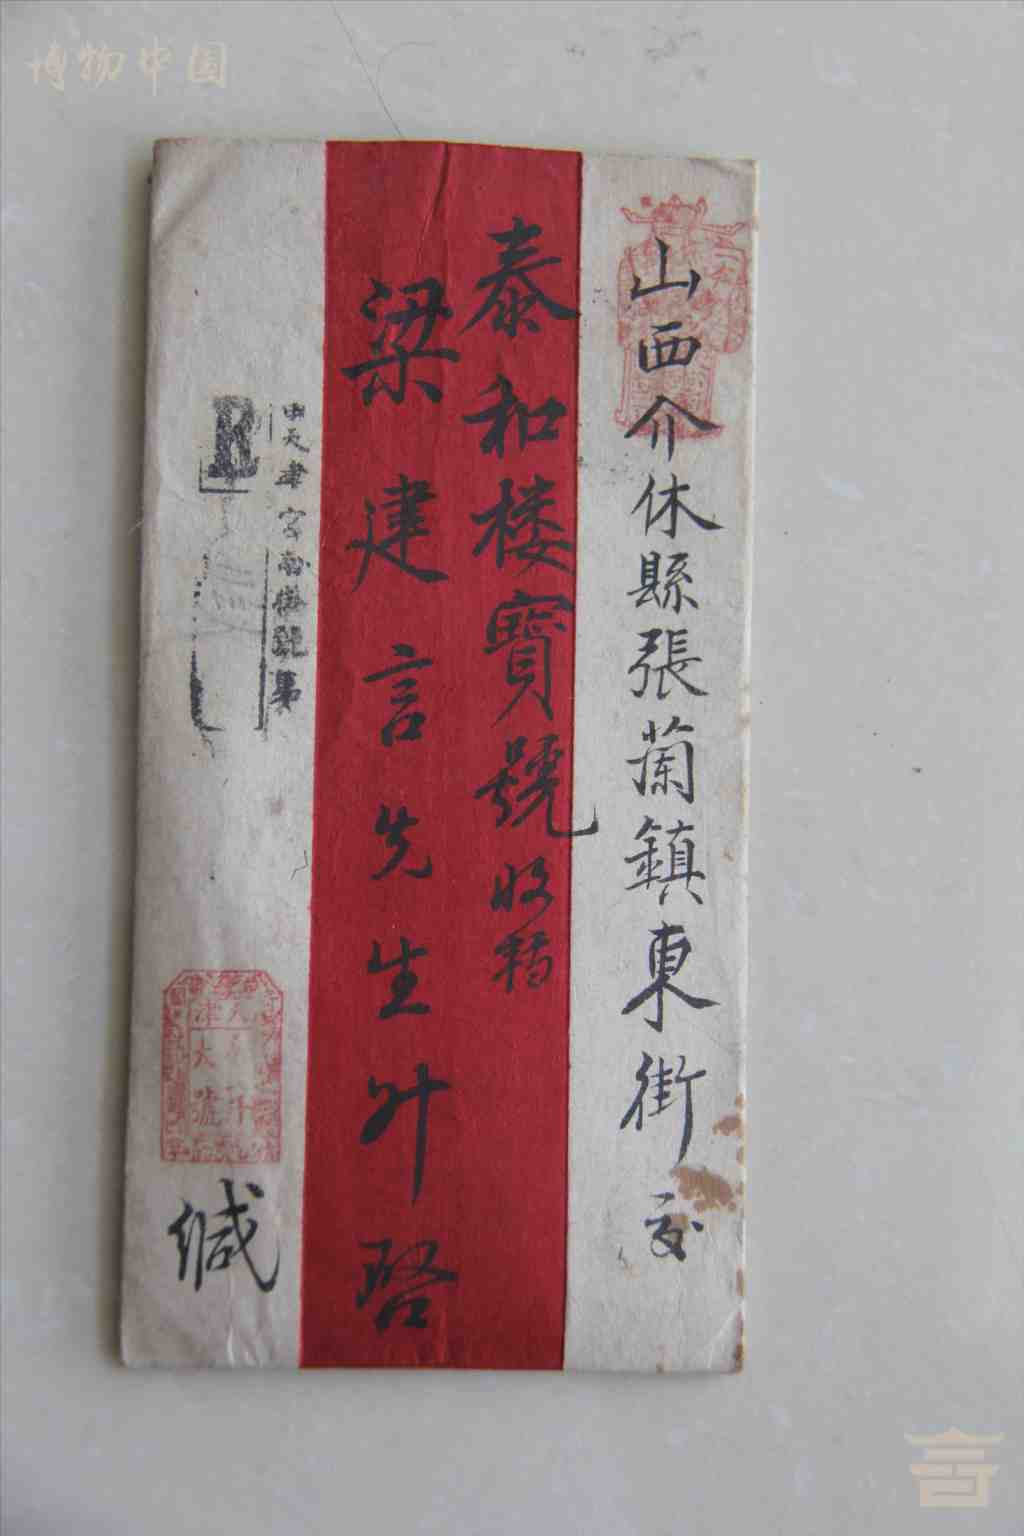 博物中国
山西介休縣張蘭鎮東街交
泰和楼寳號收轉
梁建言先生升啓
由天津宮南掛號第
R
津大號
緘